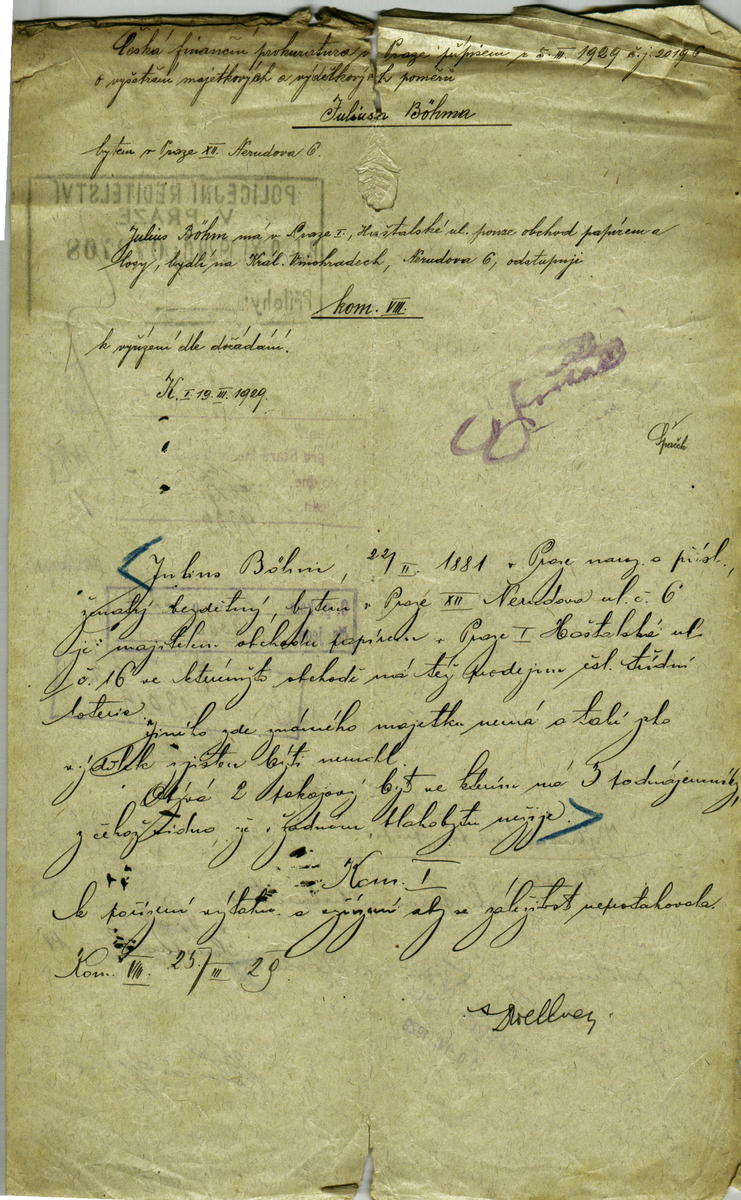 Česká finanční prokuratura v Praze přípisem z 5. III. 1929 č.j. 20196
o vyšetření majetkových a výdělkových poměrů
Juliusa Böhma
bytem v Praze XII. Nerudova 6.
POLICEJNÍ ŘEDITELSTVÍ
V PRAZE
Julius Böhm má v Praze I., Haštalské ul. pouze obchod papírem a
losy, bydlí na Král. Vinohradech, Nerudova 6, odstupuji
708
Přílohy:
kom. VIII.
k vyřízení dle dožádání.
K. I 19. III. 1929.
Julius Böhm, 22/II. 1881 v Praze naroz. a přísl.,
ženatý bezdětný, bytem v Praze XII Nerudova ul. č. 6
je majitelem obchodu papírem v Praze I Haštalské ul.
č. 16 ve kterémžto obchodě má též prodejnu čsl. třídní
loterie.
Jiného zde známého majetku nemá a také jeho
výdělek zjištěn býti nemohl.
Obývá 2 pokojový byt ve kterém má 3 podnájemníky,
z čehož vidno, že v žádném blahobytu nežije.
Kom. I
k pořízení výtahu a vyřízení aby se záležitost neprotahovala.
Kom. VIII. 25/III 29.